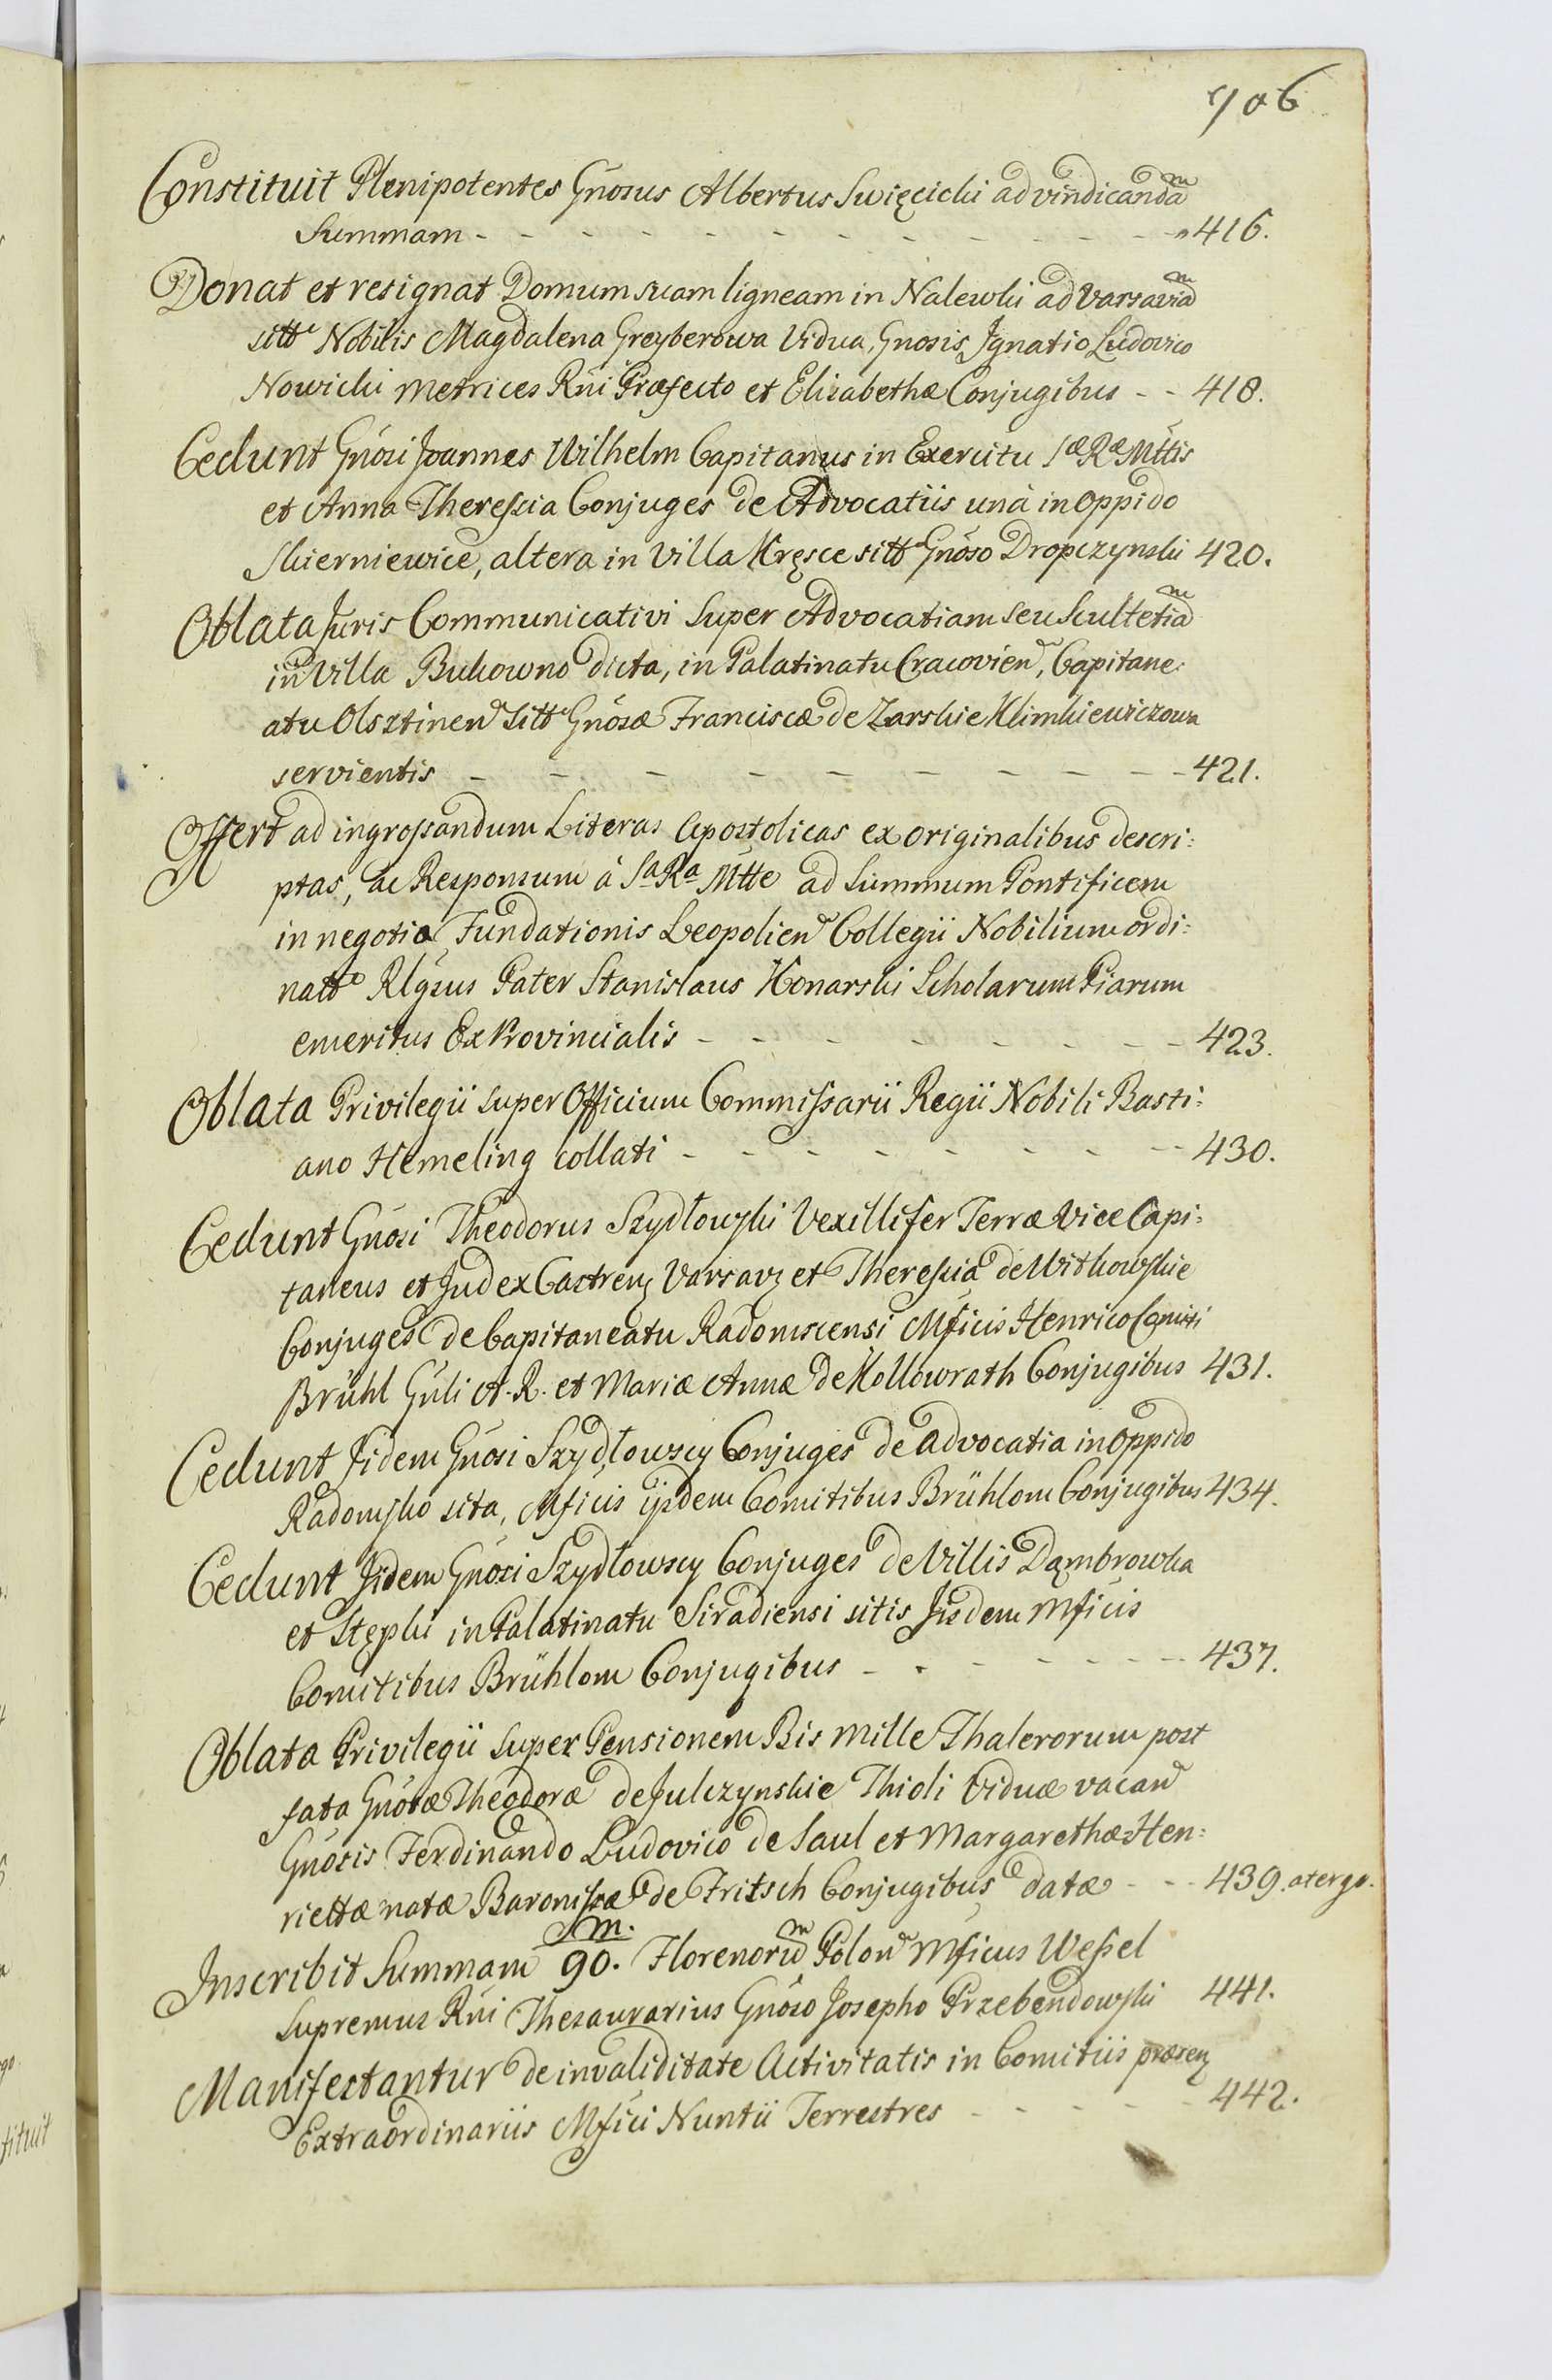 906
Constituit Plenipotentes Gnosus Albertus Swięcicki ad vindicandam
Summam - - - - - - - - - - - 416.
Donat et resignat Domum suam ligneam in Nalewki ad Varsaviam
sitt Nobilis Magdalena Greyberowa Vidua, Gnosis Ignatio Ludovico
Nowicki metrices Rni Præfecto et Elisabethæ Conjugibus - - 418.
Cedunt Gnosi Joannes Wilhelm Capitanus in Exercitu Sæ Ræ Mttis
et Anna Theressia Conjuges de Advocatiis unà in oppido
Skierniewice, altera in Villa Kręsce sitt Gnoso Dropczynski 420.
Oblata Juris Communicativi Super Advocatiam seu Scultetiam
in Villa Bukowno dicta, in Palatinatu Cracovien, Capitane:
atu Olsztinen sitt Gnosæ Franciscæ de Zarskie Klimkiewiczowa
servientis - - - - - - - - - 421.
Offert ad ingrossandum Literas Apostolicas ex originalibus descri:
ptas, ac Responsum à Sa Ra Mtte ad Summum Pontificem
in negotio Fundationis Leopolien Collegii Nobilium ordi:
natt Rlgsus Pater Stanislaus Konarski Scholarum Piarum
emeritus ExProvincialis - - - - - - - - 423.
Oblata Privilegii super Officium Commissarii Regii Nobili Basti:
ano Hemeling collati - - - - - - - - 430.
Cedunt Gnosi Theodorus Szydłowski Vexillifer Terræ Vice Capi:
taneus et Judex Castrenz Varsavz et Theressia de Witkowskie
Conjuges de Capitaneatu Radomscensi Mficis Henrico Comiti
Brühl Gnli A. R. et Mariæ Annæ de Kollowrath Conjugibus 431.
Cedunt Jidem Gnosi Szydłowscy Conjuges de advocatia in oppido
Radomsko sita, Mficis ijsdem Comitibus Brühlom Conjugibus 434.
Cedunt Jidem Gnosi Szydłowscy Conjuges de Villis Dąmbrowka
et Stępki in Palatinatu Siradiensi sitis Jisdem Mficis
Comitibus Brühlom Conjugibus - - - - - - - 437.
Oblata Privilegii super Pensionem Bis mille Thalerorum post
fata Gnosæ Theodoræ de Julczynskie Thioli Viduæ vacan
Gnosis Ferdinando Ludovico de Saul et Margarethæ Hen:
riettæ natæ Baronissæ de Fritsch Conjugibus datæ - - - 439. atergo.
Inscribit Summam 90.m. Florenorum Polon Mficus Wessel
Supremus Rni Thesaurarius Gnoso Josepho Przebendowski 441.
Manifestantur de invaliditate Activitatis in Comitiis præsenz
Extraordinariis Mfici Nuntii Terrestres - - - - - 442.